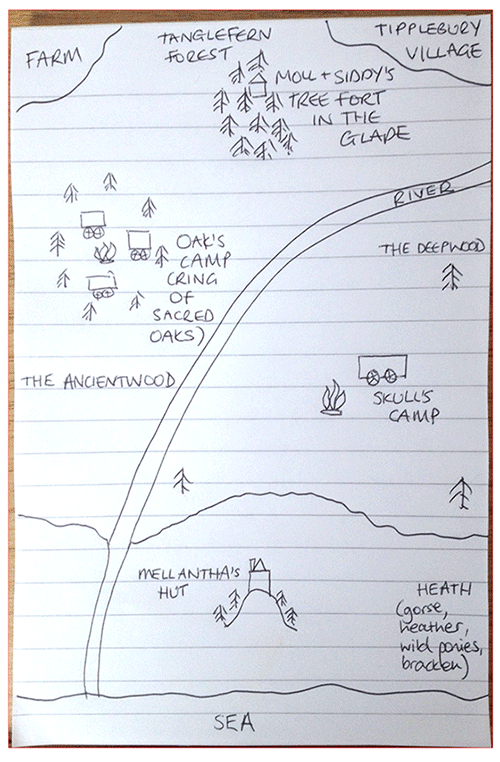 FARM
TANGLEFERN
FOREST
TIPPLEBURY
VILLAGE
MOLL + SIDDY'S
TREE FORT
IN THE
GLADE
RIVER
THE DEEPWOOD
OAK'S
CAMP
(RING
OF
SACRED
OAKS)
THE ANCIENTWOOD
SKULL'S
CAMP
MELLANTHA'S
HUT
HEATH
(gorse,
heather,
wild ponies,
bracken)
SEA